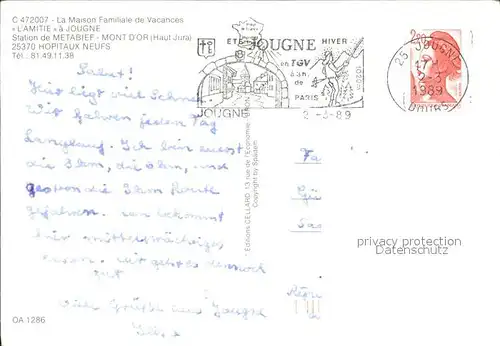 C 472007 - La Maison Familiale de Vacances
"L'AMITIE" à JOUGNE
Station de METABIEF - MONT D'OR (Haut Jura)
25370 HOPITAUX NEUFS
Tél.: 81.49.11.38
ETE JOUGNE HIVER
en TGV
à 3h.
de
PARIS
JOUGNE
2-3-89
25 JOUGNE
2-3
1989
DOUBS
2,20
Salut!
Hier liegt viel Schnee
Wir fahren jeden Tag
Langlauf. Ich bin zuerst
die 3km, die 6km, und
gestern die 9km Route
gefahren. man bekommt
hier mittelmässiges
essen. mir geht es dennoch
gut
Viele Grüße aus Jougne
Editions CELLARD, 13 rue de l'Economie
Copyright by Spadem
Fa
privacy protection
watermark
OA 1286